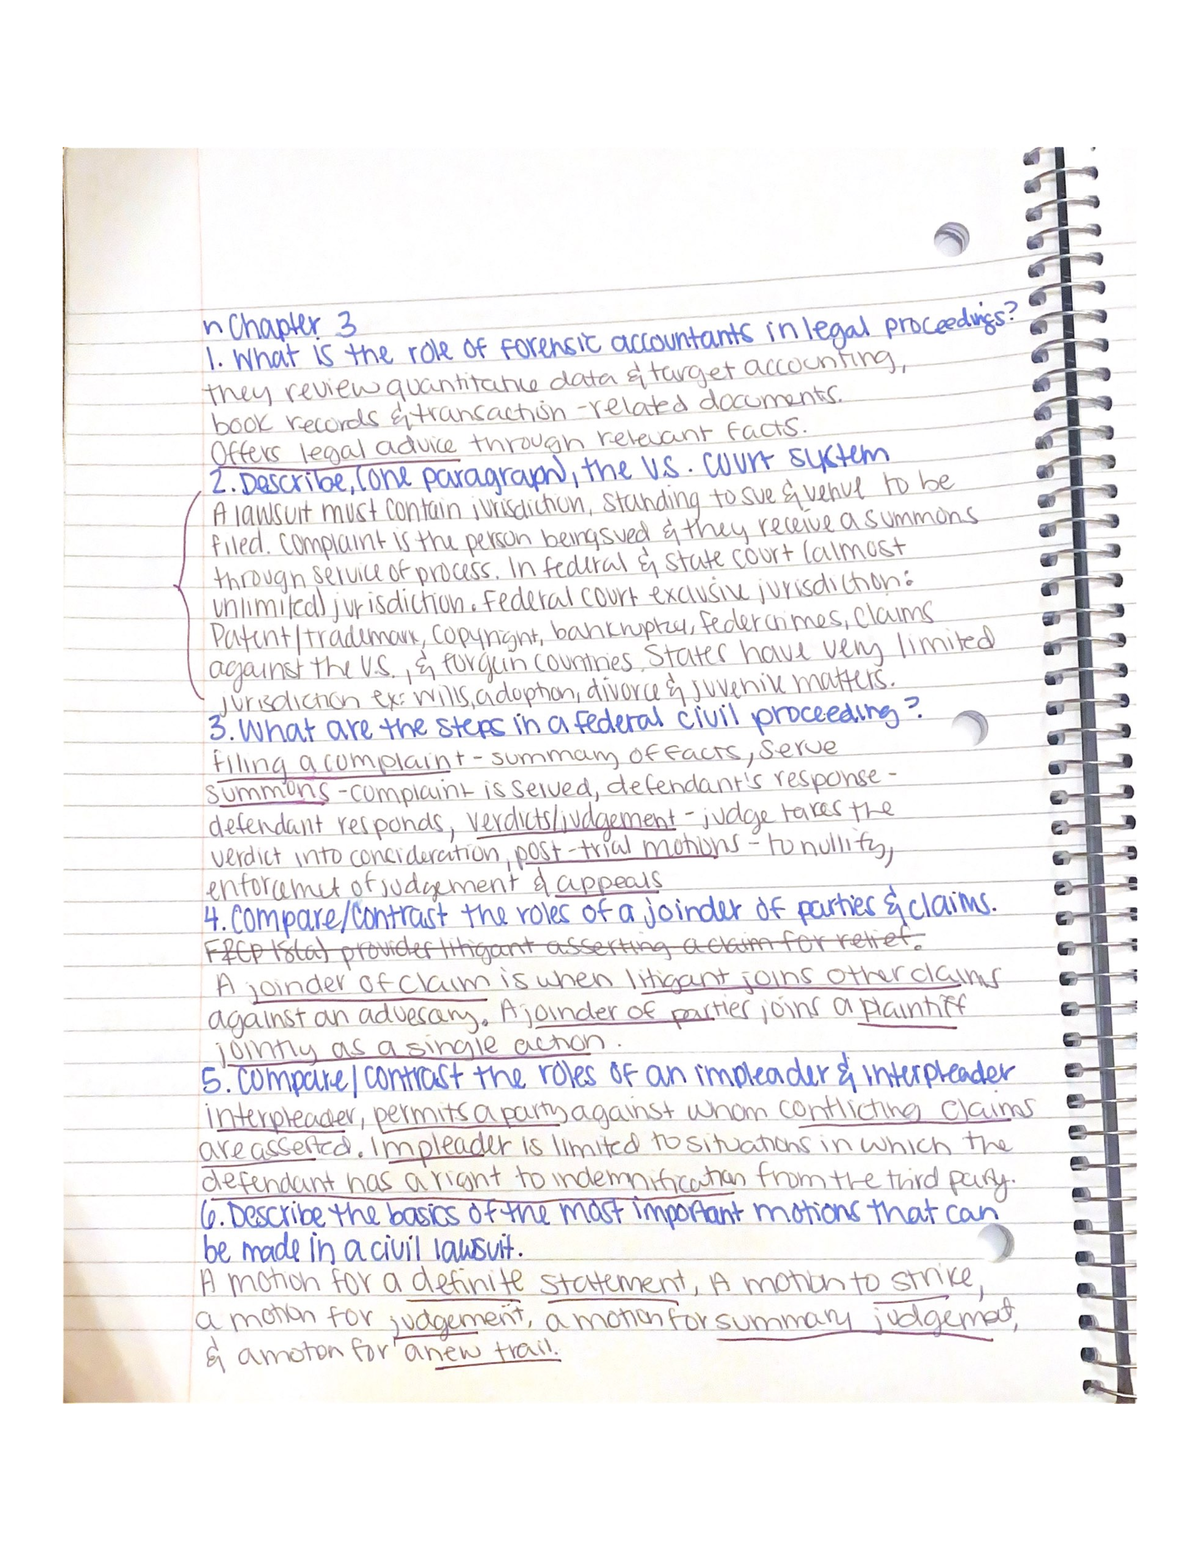 n Chapter 3
1. What is the role of forensic accountants in legal proceedings?
they review quantitative data & target accounting,
book records & transaction-related documents.
Offers legal advice through relevant facts.
2. Describe, (one paragraph), the U.S. court system
A lawsuit must contain jurisdiction, standing to sue & venue to be
filed. Complaint is the person being sued & they receive a summons
through service of process. In federal & state court (almost
unlimited) jurisdiction. Federal court exclusive jurisdiction:
Patent/trademark, copyright, bankruptcy, feder crimes, claims
against the U.S., & forgein countries. States have very limited
jurisdiction ex: wills, adoption, divorce & juvenile matters.
3. What are the steps in a federal civil proceeding?
filing a complaint - summary of facts, serve
summons - complaint is served, defendant's response -
defendant responds, verdicts/judgement - judge takes the
verdict into concideration, post-trial motions - to nullify,
enforcemet of judgement & appeals
4. Compare/contrast the roles of a joinder of parties & claims.
FRCP 18(a) provides litigant asserting a claim for relief.
A joinder of claim is when litigant joins other claims
against an advesary. A joinder of parties joins a plaintiff
jointly as a single action.
5. Compare/contrast the roles of an impleader & interpleader
interpleader, permits a party against whom conflicting claims
are asserted. Impleader is limited to situations in which the
defendant has a right to indemnification from the third party.
6. Describe the basics of the most important motions that can
be made in a civil lawsuit.
A motion for a definite statement, A motion to strike,
a motion for judgement, a motion for summary judgemet,
& a moton for a new trail.